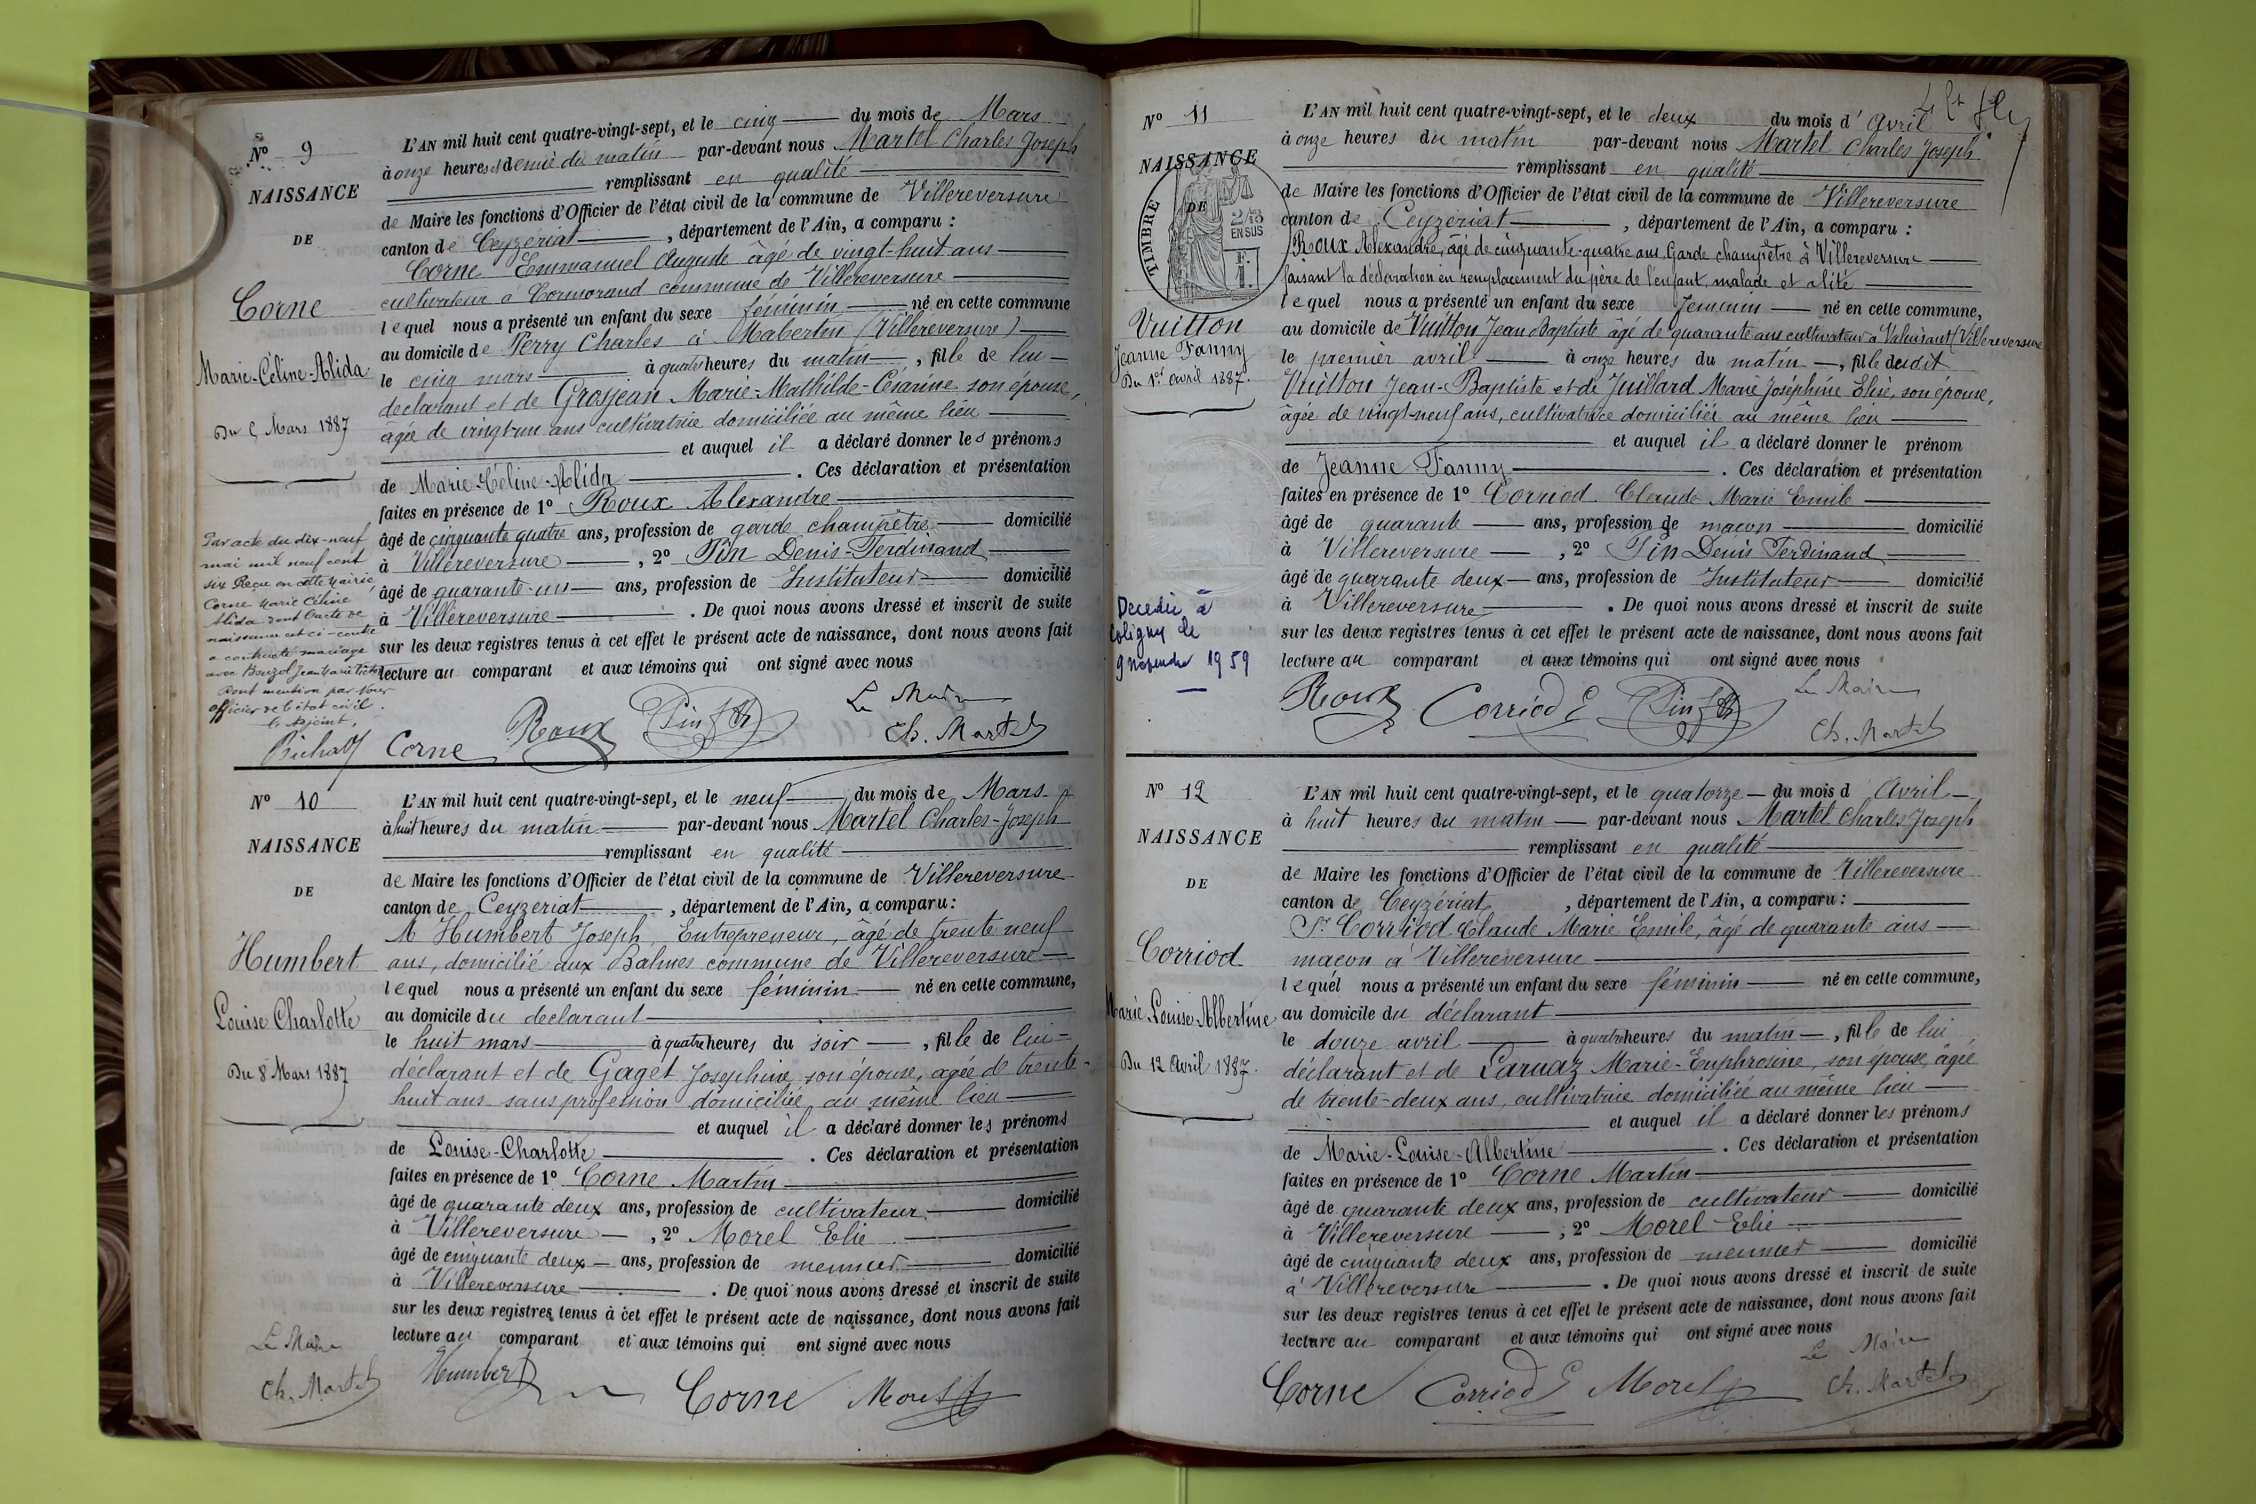 N° 9
NAISSANCE
DE
Corne
Marie-Céline-Alida
Du 5 Mars 1887
L'AN mil huit cent quatre-vingt-sept, et le cinq du mois de Mars
à onze heures et demie du matin par-devant nous Martel Charles Joseph
remplissant en qualité
de Maire les fonctions d'Officier de l'état civil de la commune de Villereversure
canton de Ceyzériat, département de l'Ain, a comparu :
Corne Emmanuel Auguste âgé de vingt-huit ans
cultivateur à Cormorand commune de Villereversure
lequel nous a présenté un enfant du sexe féminin né en cette commune
au domicile de Perry Charles à Mabertin (Villereversure)
le cinq mars à quatre heures du matin, fille de lui
déclarant et de Grosjean Marie-Mathilde-Césarine son épouse,
âgée de vingt-un ans cultivatrice domiciliée au même lieu
et auquel il a déclaré donner les prénoms
de Marie-Céline-Alida. Ces déclaration et présentation
faites en présence de 1° Roux Alexandre
âgé de cinquante quatre ans, profession de garde champêtre domicilié
à Villereversure, 2° Pin Denis-Ferdinand
âgé de quarante-un ans, profession de Instituteur domicilié
à Villereversure. De quoi nous avons dressé et inscrit de suite
sur les deux registres tenus à cet effet le présent acte de naissance, dont nous avons fait
lecture au comparant et aux témoins qui ont signé avec nous
Par acte du dix-neuf
mai mil neuf cent
six Reçu en cette mairie
Corne Marie Céline
Alida dont l'acte de
naissance est ci-contre
a contracté mariage
avec Bouzol Jean Marie
Dont mention par Nous
officier de l'état civil.
l'adjoint,
Corne Roux Pin Le Maire
Ch. Martel
N° 10
NAISSANCE
DE
Humbert
Louise Charlotte
Du 8 Mars 1887
L'AN mil huit cent quatre-vingt-sept, et le neuf du mois de Mars
à huit heures du matin par-devant nous Martel Charles-Joseph
remplissant en qualité
de Maire les fonctions d'Officier de l'état civil de la commune de Villereversure
canton de Ceyzériat, département de l'Ain, a comparu :
M Humbert Joseph, Entrepreneur, âgé de trente neuf
ans, domicilié aux Balmes commune de Villereversure
lequel nous a présenté un enfant du sexe féminin né en cette commune,
au domicile du déclarant
le huit mars à quatre heures du soir, fille de lui
déclarant et de Gaget Joséphine, son épouse, agée de trente-
huit ans sans profession domiciliée au même lieu
et auquel il a déclaré donner les prénoms
de Louise-Charlotte. Ces déclaration et présentation
faites en présence de 1° Corne Martin
âgé de quarante deux ans, profession de cultivateur domicilié
à Villereversure, 2° Morel Elie
âgé de cinquante deux ans, profession de meunier domicilié
à Villereversure. De quoi nous avons dressé et inscrit de suite
sur les deux registres tenus à cet effet le présent acte de naissance, dont nous avons fait
lecture au comparant et aux témoins qui ont signé avec nous
Le Maire
Ch. Martel Humbert Corne Morel
N° 11
NAISSANCE
DE
TIMBRE
2/10
EN SUS
Vuitton
Jeanne Fanny
Du 1er Avril 1887.
L'AN mil huit cent quatre-vingt-sept, et le deux du mois d'Avril
à onze heures du matin par-devant nous Martel Charles Joseph
remplissant en qualité
de Maire les fonctions d'Officier de l'état civil de la commune de Villereversure
canton de Ceyzériat, département de l'Ain, a comparu :
Roux Alexandre, âgé de cinquante-quatre ans, Garde champêtre à Villereversure
faisant la déclaration en remplacement du père de l'enfant, malade et alité
lequel nous a présenté un enfant du sexe féminin né en cette commune,
au domicile de Vuitton Jean Baptiste âgé de quarante ans cultivateur à (Villereversure
le premier avril à onze heures du matin, fille dudit
Vuitton Jean-Baptiste et de Juillard Marie Joséphine Elise, son épouse,
âgée de vingt-neuf ans, cultivatrice domiciliée au même lieu
et auquel il a déclaré donner le prénom
de Jeanne Fanny. Ces déclaration et présentation
faites en présence de 1° Corriod Claude Marie Emile
âgé de quarante ans, profession de maçon domicilié
à Villereversure, 2° Pin Denis Ferdinand
âgé de quarante deux ans, profession de Instituteur domicilié
à Villereversure. De quoi nous avons dressé et inscrit de suite
sur les deux registres tenus à cet effet le présent acte de naissance, dont nous avons fait
lecture au comparant et aux témoins qui ont signé avec nous
Décédée à
Coligny le
9 novembre 1959
Roux Corriod E Pin Le Maire
Ch. Martel
N° 12
NAISSANCE
DE
Corriod
Marie-Louise-Albertine
Du 12 Avril 1887.
L'AN mil huit cent quatre-vingt-sept, et le quatorze du mois d Avril
à huit heures du matin par-devant nous Martel Charles Joseph
remplissant en qualité
de Maire les fonctions d'Officier de l'état civil de la commune de Villereversure
canton de Ceyzériat, département de l'Ain, a comparu :
Sr Corriod Claude Marie Emile, âgé de quarante ans
maçon à Villereversure
lequel nous a présenté un enfant du sexe féminin né en cette commune,
au domicile du déclarant
le douze avril à quatre heures du matin, fille de lui
déclarant et de Carnaz Marie-Euphrosine, son épouse, âgée
de trente-deux ans, cultivatrice domiciliée au même lieu
et auquel il a déclaré donner les prénoms
de Marie-Louise-Albertine. Ces déclaration et présentation
faites en présence de 1° Corne Martin
âgé de quarante deux ans, profession de cultivateur domicilié
à Villereversure, 2° Morel Elie
âgé de cinquante deux ans, profession de meunier domicilié
à Villereversure. De quoi nous avons dressé et inscrit de suite
sur les deux registres tenus à cet effet le présent acte de naissance, dont nous avons fait
lecture au comparant et aux témoins qui ont signé avec nous
Corne Corriod E Morel Le Maire
Ch. Martel